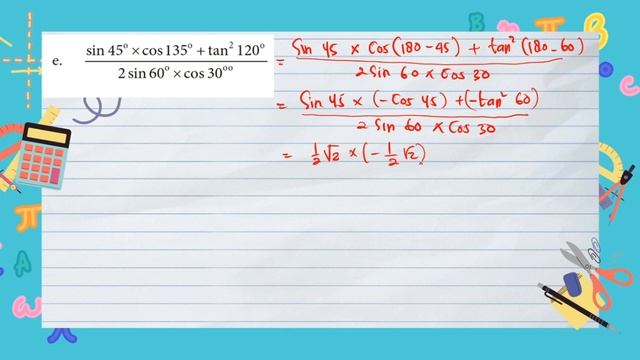 e. sin 45° × cos 135° + tan² 120° / 2 sin 60° × cos 30°°
= Sin 45 × Cos (180 - 45) + tan² (180 - 60) / 2 Sin 60 × Cos 30
= Sin 45 × (- Cos 45) + (- tan² 60) / 2 Sin 60 × Cos 30
= 1/2 √2 × (- 1/2 √2)